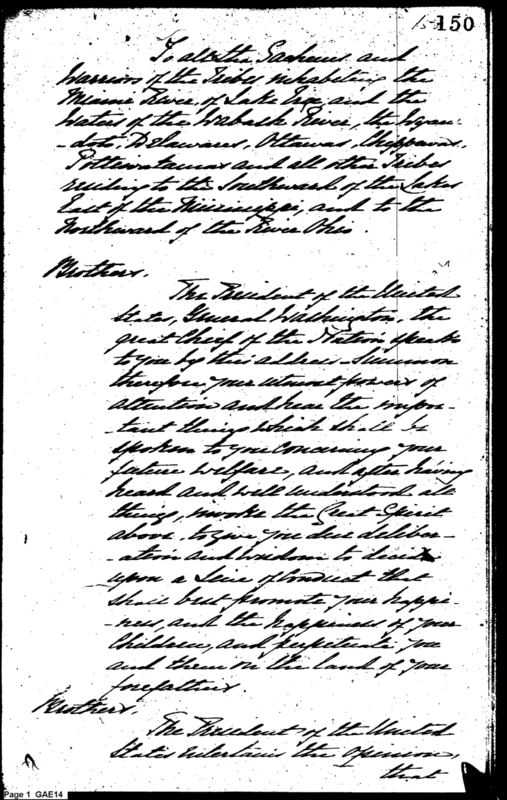 150
To all the Sachems and
Warriors of the Tribes inhabiting the
Miami River of Lake Erie and the
Waters of the Wabash River, the Wyan-
-dots, Delawares, Ottawas, Chippawas,
Pottiwatamas and all other Tribes
residing to the Southward of the Lakes
East of the Mississippi, and to the
Northward of the River Ohio.
Brothers.
The President of the United
States, General Washington, the
great Chief of the Nation speaks
to you by this address - Summon
therefore your utmost powers of
attention and hear the impor-
-tant things which shall be
spoken to you concerning your
future welfare, and after having
heard and well understood all
things, invoke the Great Spirit
above to give you due deliber-
-ation and wisdom to decide
upon a line of Conduct that
shall best promote your happi-
-ness, and the happiness of your
Children, and perpetuate you
and them on the land of your
forefathers.
Brothers.
The President of the United
States entertains the Opinion,
that
Page 1 GAE14